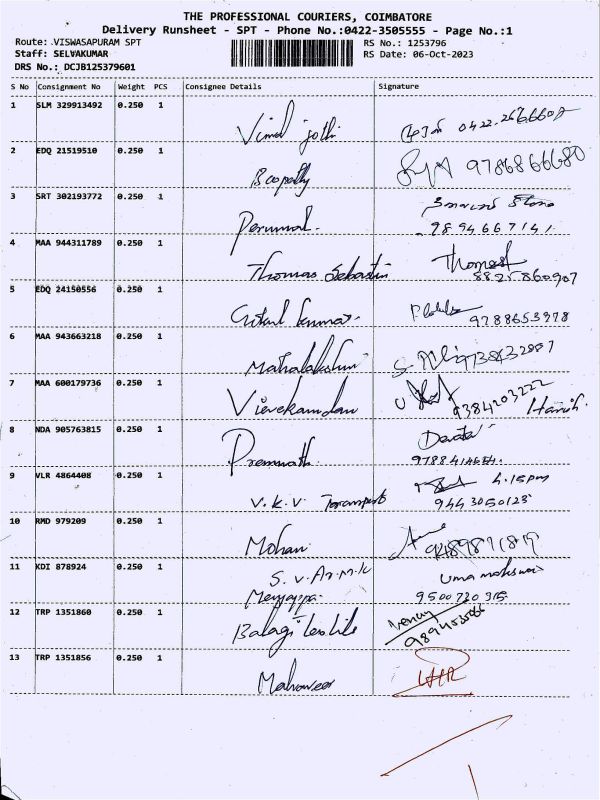 THE PROFESSIONAL COURIERS, COIMBATORE
Delivery Runsheet - SPT - Phone No.:0422-3505555 - Page No.:1
Route: VISWASAPURAM SPT
RS No.: 1253796
Staff: SELVAKUMAR
RS Date: 06-Oct-2023
DRS No.: DCJB125379601
S No Consignment No Weight PCS Consignee Details Signature
1 SLM 329913492 0.250 1 Vimal jothi
2 EDQ 21519510 0.250 1 Boopathy 9786866680
3 SRT 302193772 0.250 1 Perumal
9894667141
4 MAA 944311789 0.250 1 Thomas Sebastin Thomas
8825860907
5 EDQ 24150556 0.250 1 kumar
9788653978
6 MAA 943663218 0.250 1 Mahalakshmi
7 MAA 600179736 0.250 1 Vivekanandan 9384203222 Harish
8 NDA 905763815 0.250 1 Premnath
9 VLR 4864408 0.250 1 V.K.V Transport 4.15pm
9443050123
10 RMD 979209 0.250 1 Mohan
11 KDI 878924 0.250 1 S.V.AR.M.K
Meyyappa Uma maheswari
9500720315
12 TRP 1351860 0.250 1 Balaji textile
13 TRP 1351856 0.250 1 Mahaveer